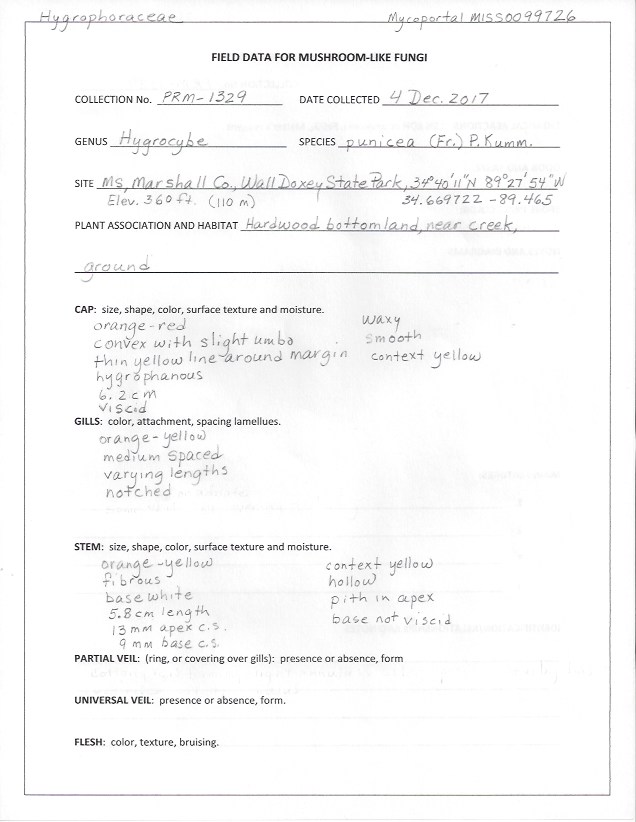 Hygrophoraceae Mycoportal MISS0099726
FIELD DATA FOR MUSHROOM-LIKE FUNGI
COLLECTION No. PRM-1329 DATE COLLECTED 4 Dec. 2017
GENUS Hygrocybe SPECIES punicea (Fr.) P. Kumm.
SITE MS, Marshall Co., Wall Doxey State Park, 34°40'11"N 89°27'54"W
Elev. 360 ft. (110 m) 34.669722 -89.465
PLANT ASSOCIATION AND HABITAT Hardwood bottomland, near creek,
ground
CAP: size, shape, color, surface texture and moisture.
orange-red
convex with slight umbo
thin yellow line around margin
hygrophanous
6.2 cm
viscid
waxy
smooth
context yellow
GILLS: color, attachment, spacing lamellues.
orange-yellow
medium spaced
varying lengths
notched
STEM: size, shape, color, surface texture and moisture.
orange-yellow
fibrous
base white
5.8 cm length
13 mm apex c.s.
9 mm base c.s.
context yellow
hollow
pith in apex
base not viscid
PARTIAL VEIL: (ring, or covering over gills): presence or absence, form
UNIVERSAL VEIL: presence or absence, form.
FLESH: color, texture, bruising.